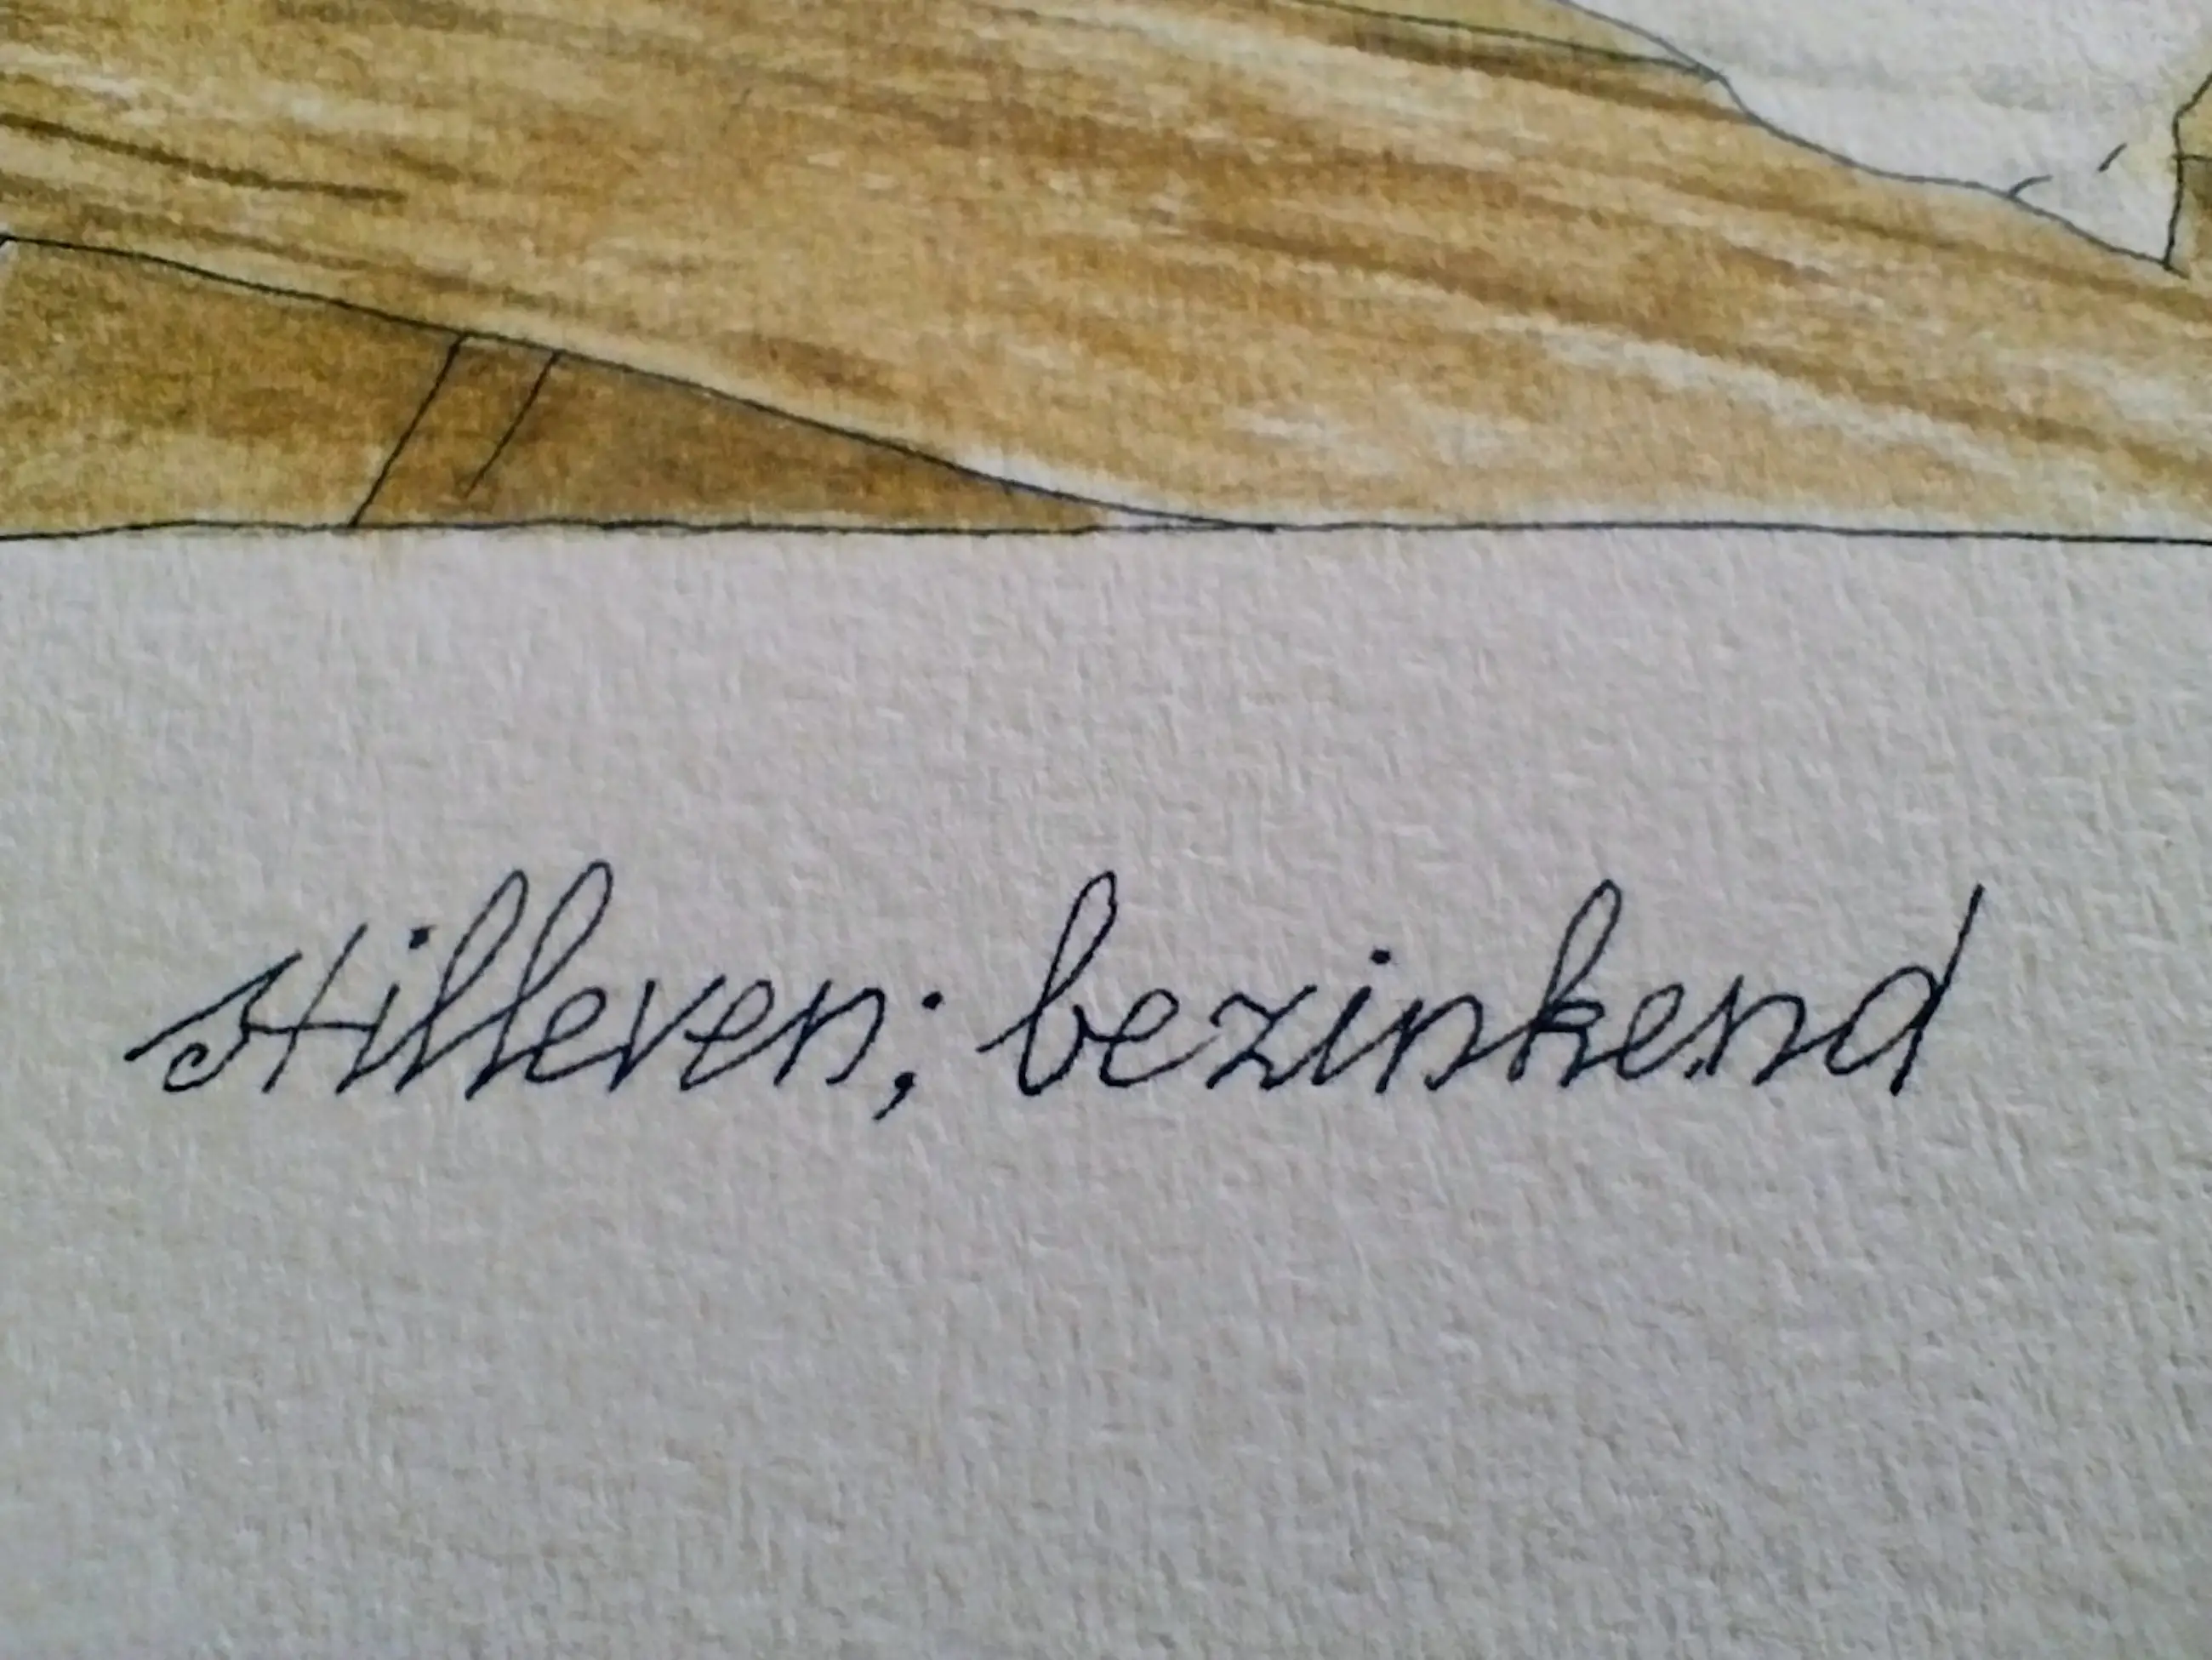 stilleven; bezinkend